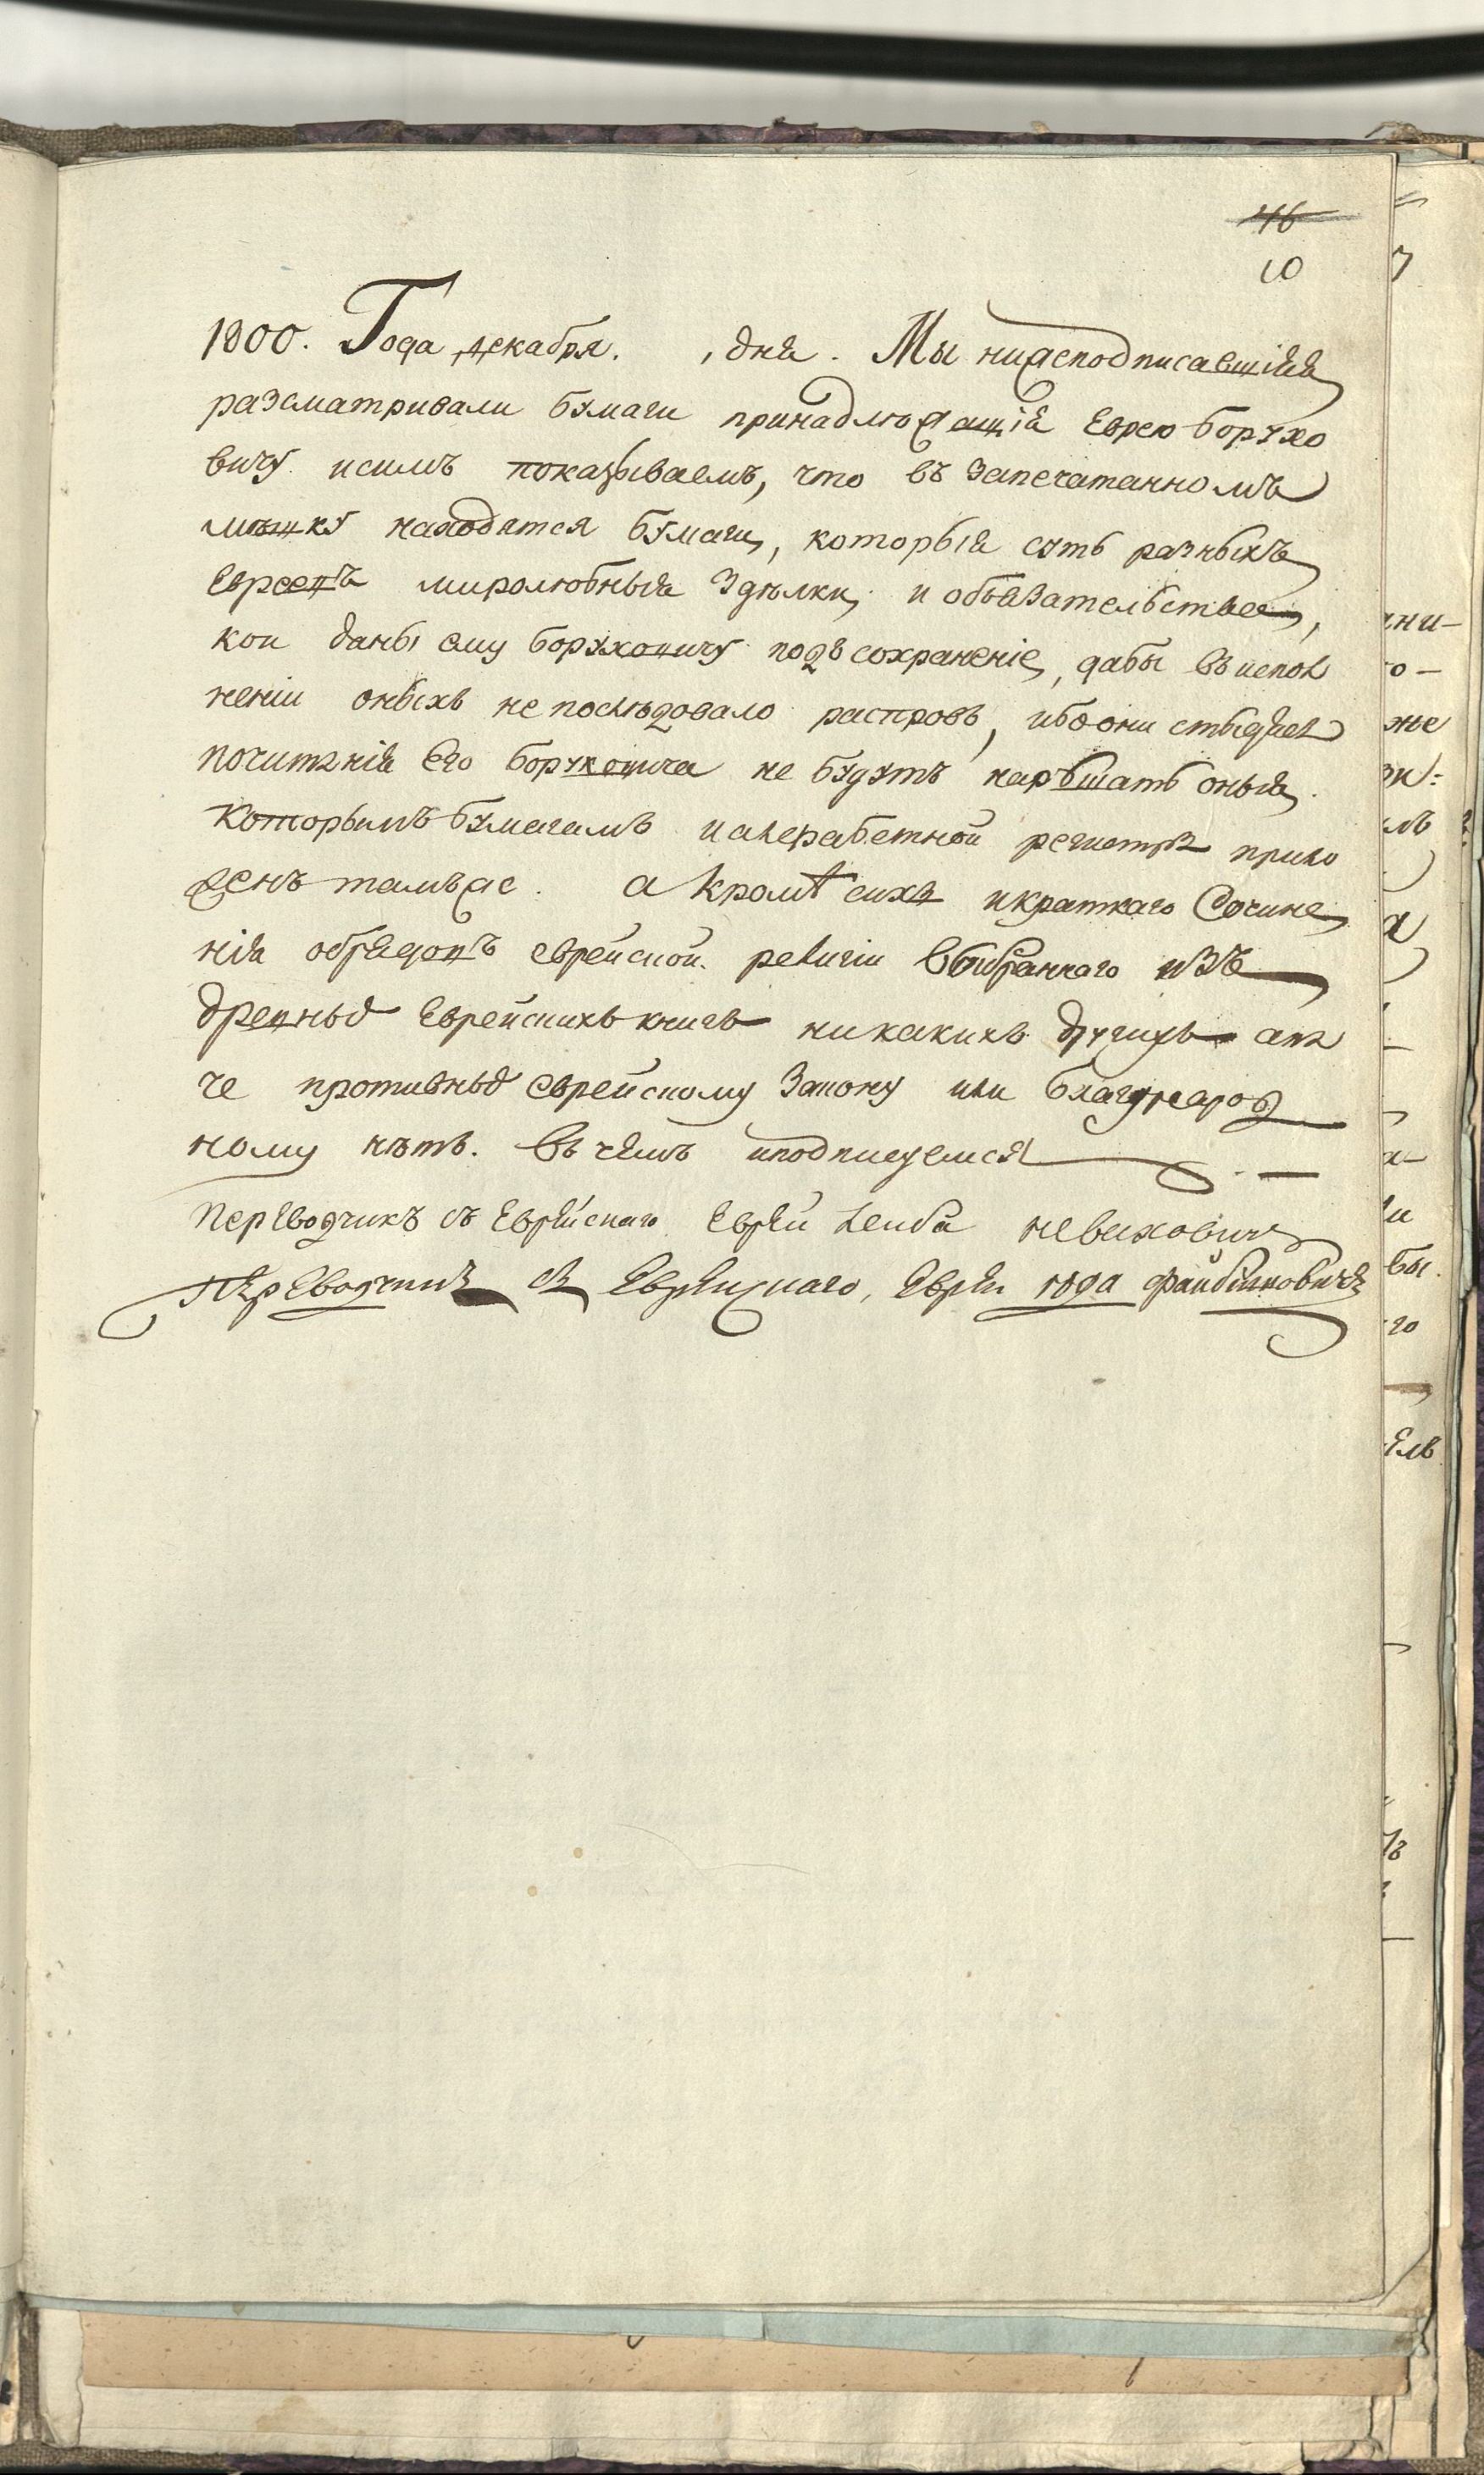 46
10
1800. Года декабря. , дня. Мы нижеподписавшiяся
разсматривали бумаги принадлюжащiя Еврею Борухо
вичу и симъ показываемъ, что въ запечатанномъ
мѣшку находятся бумаги, которыя суть разныхъ
Евреевъ миролюбныя здѣлки, и объязательствы,
кои даны ему Боруховичу подъ сохраненiе, дабы въ испол
ненiи оныхъ не послѣдовало распровъ, ибо они
почитанiя Его Боруховича не будутъ нарѣшать оныя.
Которымъ бумагамъ и алерабетной регистръ прило
женъ тамъже. а кромѣ сихъ и краткаго Сочине
нiя обрядовъ еврейской религiи выбраннаго изъ
древныхъ Еврейскихъ книгъ никакихъ другихъ апа
че противныхъ еврейскому Закону или благународ
ному нѣтъ. въ чемъ и подписуемся
переводчикъ съ Еврейскаго Еврей Лейба Неваховичъ
переводчикъ съ Еврейскаго, Еврей Юда Файбишовичъ
ни-
о-
же
зи=
лъ
а-
бы
го
ель